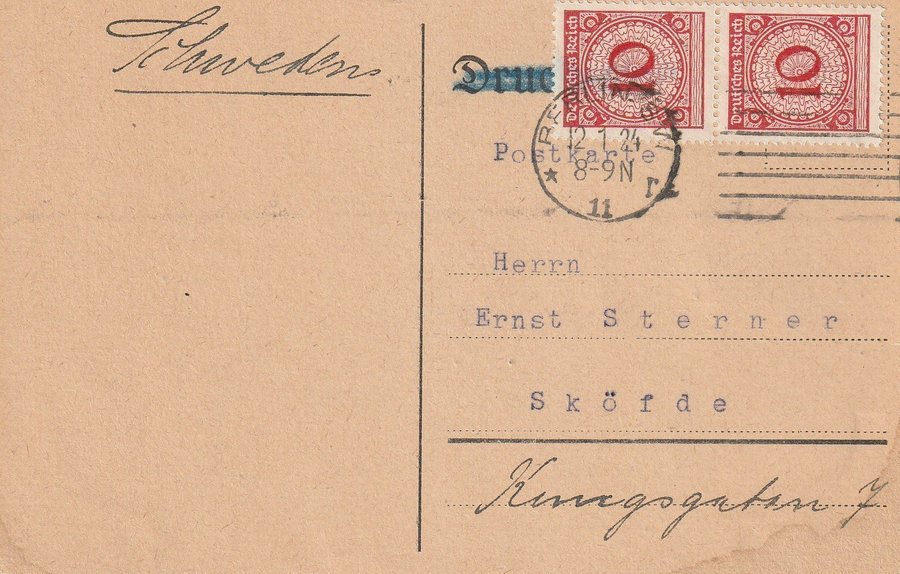 Schweden
Druc
Deutsches Reich
10
Deutsches Reich
10
BERLIN
12.1.24
8-9N
11
Postkarte
Herrn
Ernst Sterner
Sköfde
Kungsgatan 7